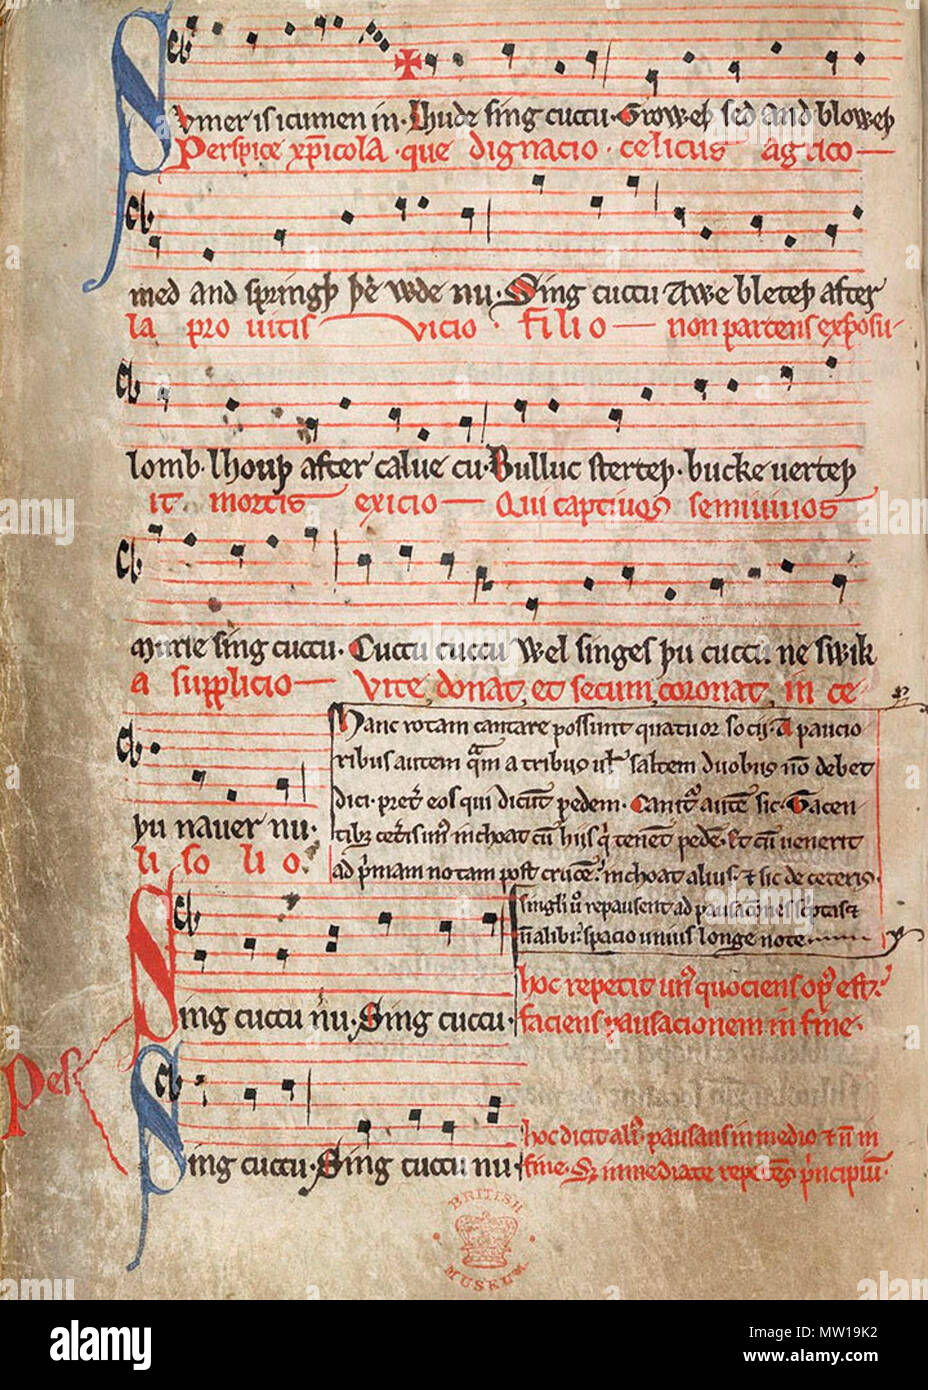 Sumer is icumen in· Lhude sing cuccu· Groweþ sed and bloweþ
Perspice xp̅icola· que dignacio· celicus agrico
med and springþ þe wde nu· Sing cuccu Awe bleteþ after
la pro uitis vicio· filio non parcens exposu
lomb· lhouþ after calue cu· Bulluc sterteþ· bucke uerteþ
it mortis exicio Qui captiuos semiuiuos
murie sing cuccu· Cuccu cuccu Wel singes þu cuccu ne swik
a supplicio Vite donat et secum coronat in ce
þu nauer nu·
li solio·
Hanc rotam cantare possunt quatuor socij· A paucio
ribus autem q̅m a tribus ul̅ saltem duobus n̅o debet
dici· pret̅ eos qui dicu̅t pedem· Canit̅ aute̅ sic· Tacen
tib; cet̅is un̅ inchoat cu̅ hiis q̅ tene̅t pede̅· Et cu̅ uenerit
ad p̅mam notam post cruce̅· inchoat alius· & sic de ceteris·
singli u̅o repausent ad pausac̅ones sc̅ptas &
n̅ alibi· spacio unius longe note
Sing cuccu nu· Sing cuccu·
hoc repetit un̅ quociens op̅ est·
faciens pausacionem in fine·
Pes
Sing cuccu· Sing cuccu nu·
hoc dicit ali̅· pausans in medio & n̅ in
fine· Set immediate repetens p̅ncipiu̅·
BRITISH
MUSEUM
alamy
Image ID: MW19K2
www.alamy.com